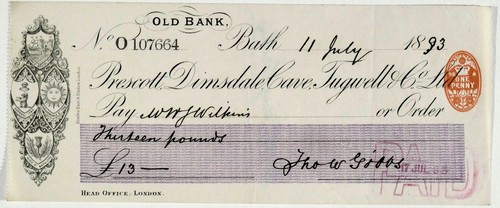 OLD BANK.
No. O 107664 Bath 11 July 1893
Prescott, Dimsdale, Cave, Tugwell & Co. Ltd.
ONE PENNY
Pay W W J Wilkins or Order
Thirteen pounds
£13 — Thos W Gibbs
PAID
17 JUL 93
HEAD OFFICE: LONDON.